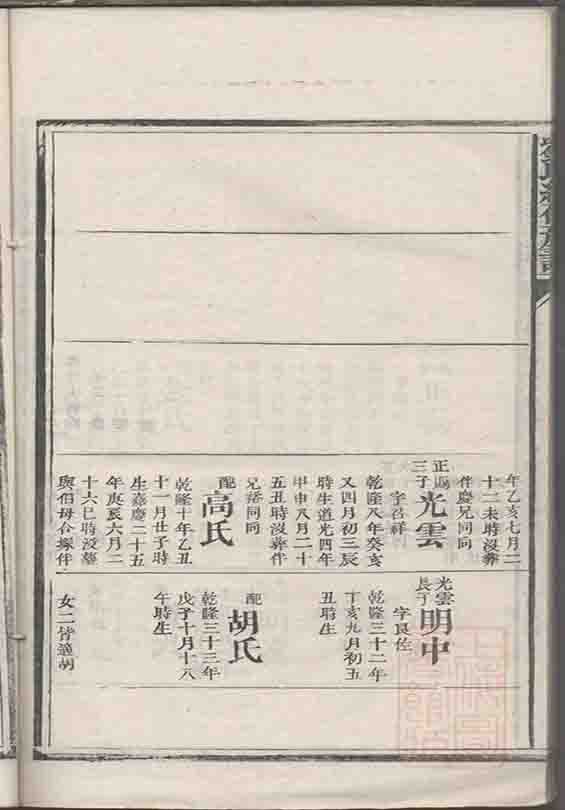 年乙亥七月二
十二未時沒葬
伴慶兄同同
正賜
三子
光雲
字召祥
乾隆八年癸亥
又四月初三辰
時生道光四年
甲申八月二十
五丑時沒葬伴
兄諮同同
配
高氏
乾隆十年乙丑
十一月廿子時
生嘉慶二十五
年庚辰六月二
十六巳時沒葬
與伯母合塚伴
光雲
長子
明中
字良佐
乾隆三十二年
丁亥九月初五
丑時生
配
胡氏
乾隆三十三年
戊子十月十八
午時生
女二皆適胡